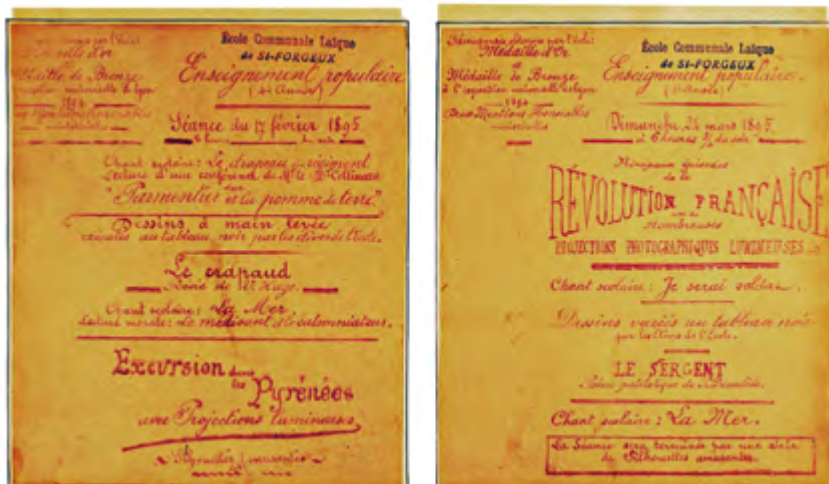 École Communale Laïque
de St-FORGEUX
Enseignement populaire
Médaille de Bronze
1894
Séance du 17 février 1895
Chant scolaire: Le drapeau du régiment
Lecture d'une conférence de Mr le Dr Collineau
sur
"Parmentier et la pomme de terre"
Dessins à main levée
exécutés au tableau noir par les élèves de l'école.
Le crapaud
Poésie de Vor Hugo.
Chant scolaire: La Mer
Lecture morale: Le médisant et le calomniateur.
Excursion dans
les Pyrénées
avec Projections lumineuses
Récompenses obtenues par l'école:
Médaille d'Or
et
Médaille de Bronze
à l'exposition universelle de Lyon
1894
Deux Mentions Honorables
École Communale Laïque
de St-FORGEUX
Enseignement populaire.
Dimanche 24 mars 1895
à heures du soir
Principaux épisodes
de la
RÉVOLUTION FRANÇAISE
avec de
Nombreuses
PROJECTIONS PHOTOGRAPHIQUES LUMINEUSES
Chant scolaire: Je serai soldat.
Dessins variés au tableau noir
par les élèves de l'École.
LE SERGENT
Poésie patriotique de Déroulède.
Chant scolaire: La Mer.
La Séance sera terminée par une série
de Silhouettes amusantes.